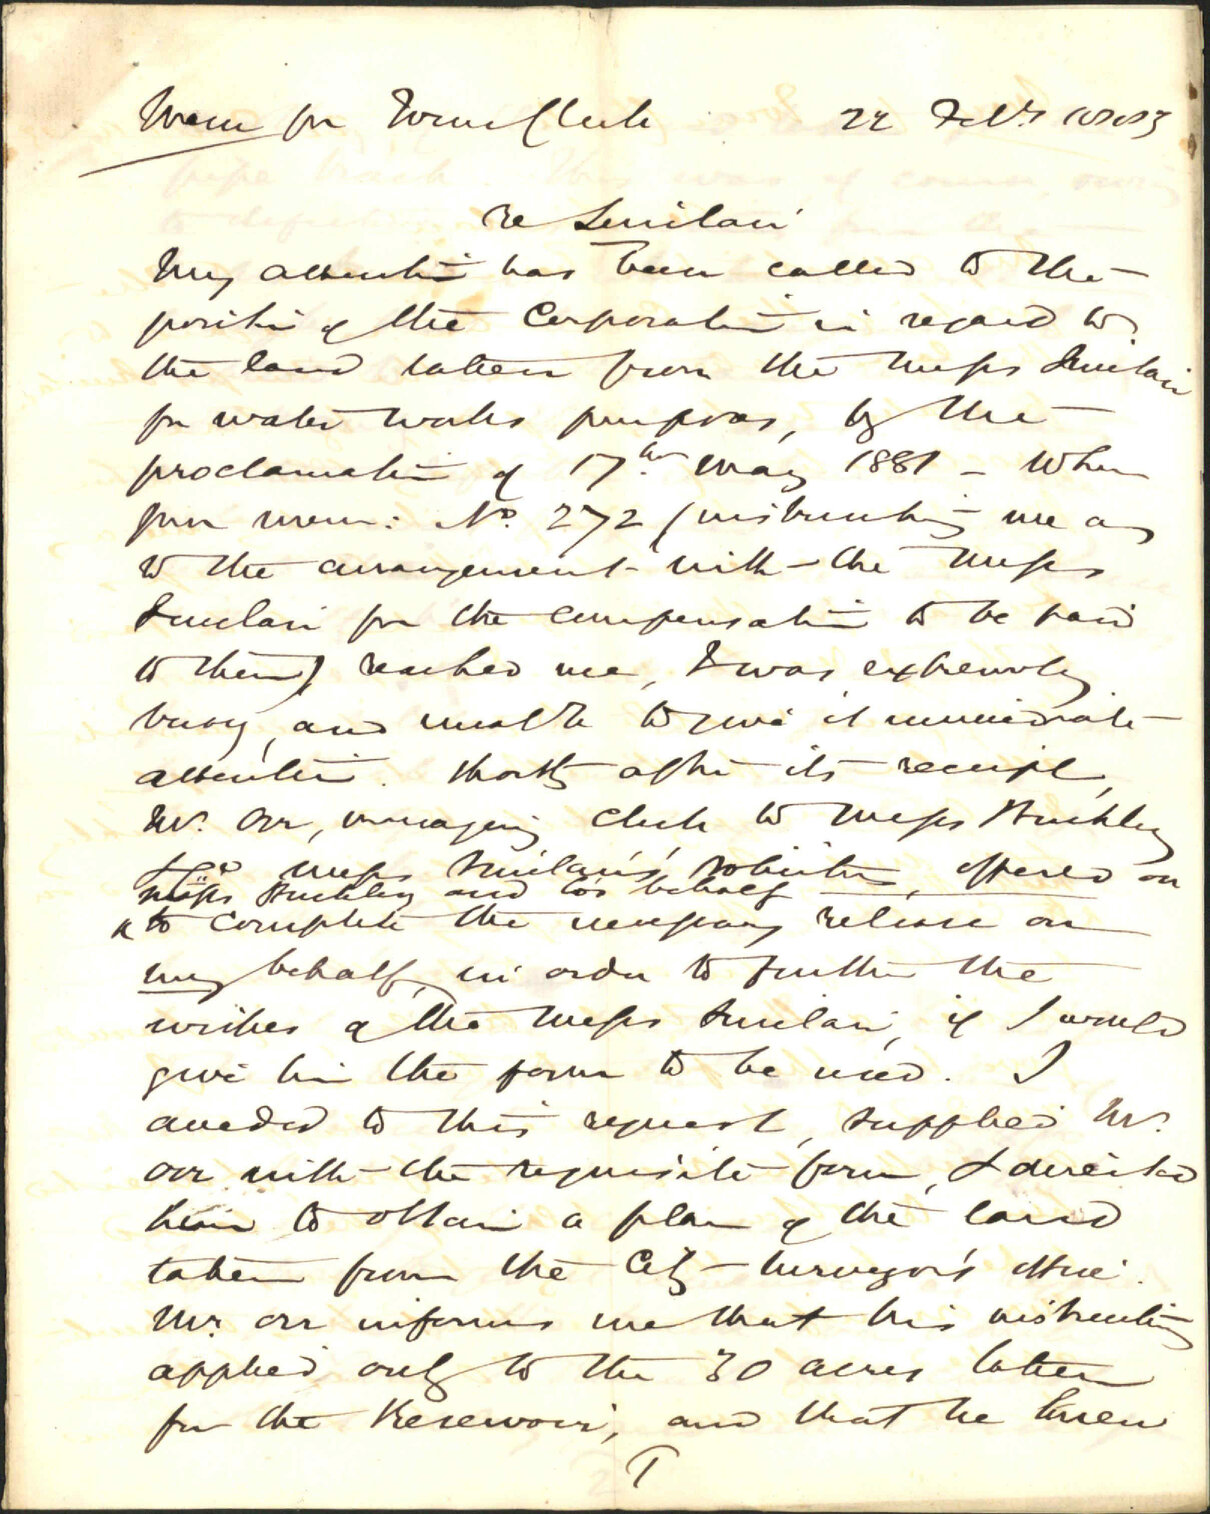 Mem for Town Clerk 22 Feby 1883
re Sinclair
My attention has been called to the
position of the Corporation in regard to
the land taken from the Messrs Sinclair
for water works purposes, by the
proclamation of 17th May 1881 - When
your mem: No. 272 (instructing me as
to the arrangement with the Messrs
Sinclair for the compensation to be paid
to them) reached me, I was extremely
busy, and unable to give it immediate
attention. Shortly after its receipt,
Mr. Orr, managing clerk to Messrs Buckley
& Co Messrs Sinclair's solicitors, offered on
Messrs Buckley and Co's behalf
to complete the necessary release on
my behalf, in order to further the
wishes of the Messrs Sinclair, if I would
give him the form to be used. I
acceded to this request, supplied Mr.
Orr with the requisite form, & directed
him to obtain a plan of the land
taken from the City Surveyor's office.
Mr. Orr informs me that his instructions
applied only to the 30 acres taken
for the Reservoir, and that he knew